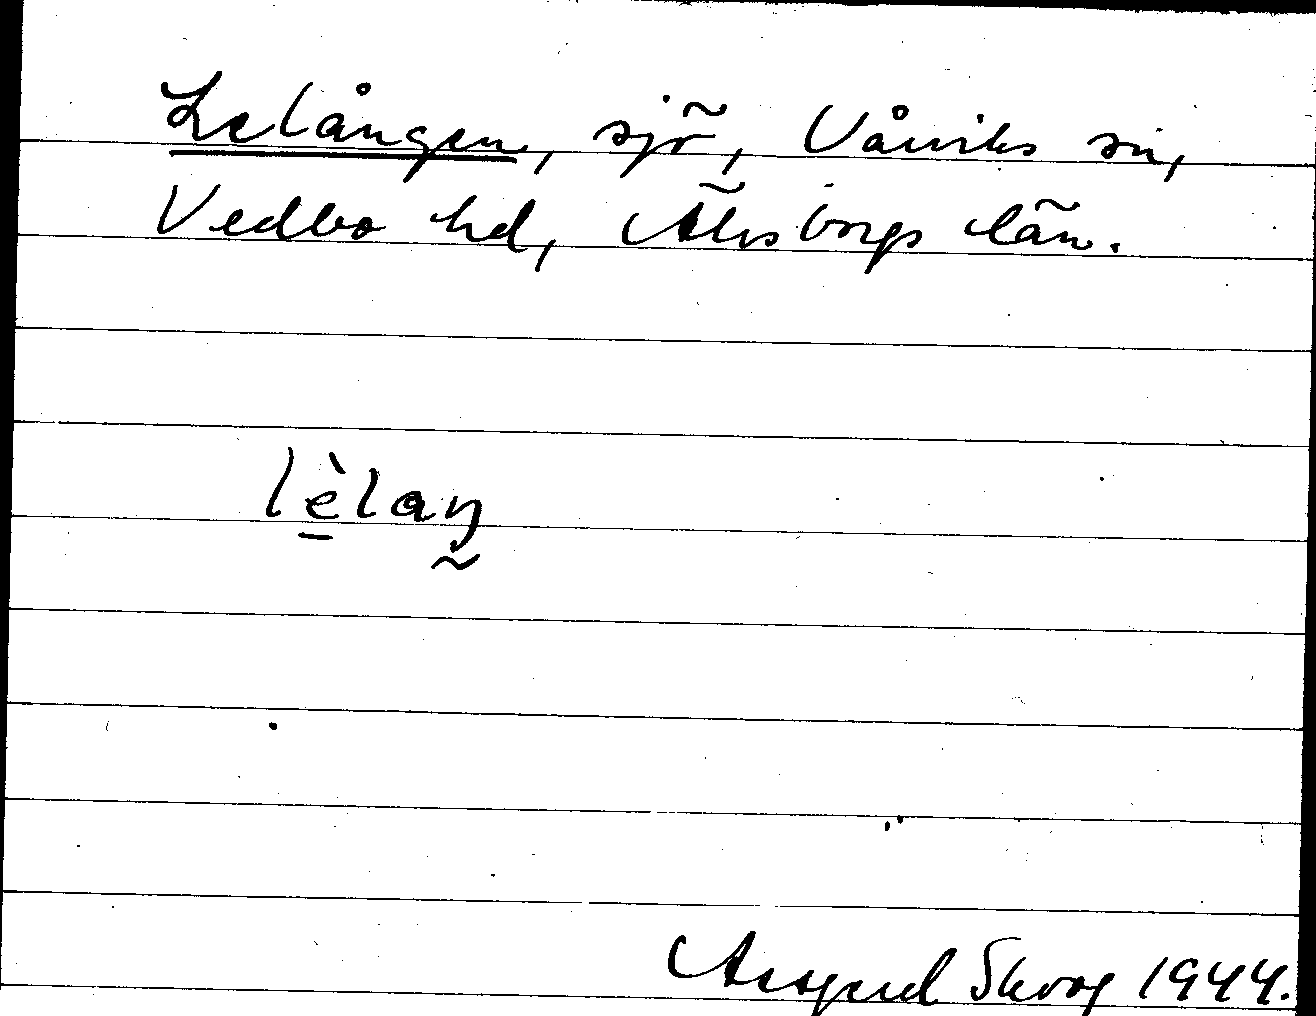 Lelången, sjö, Vårviks sn,
Vedbo hd, Älvsborgs län.
lèlaŋ
Skoog 1944.